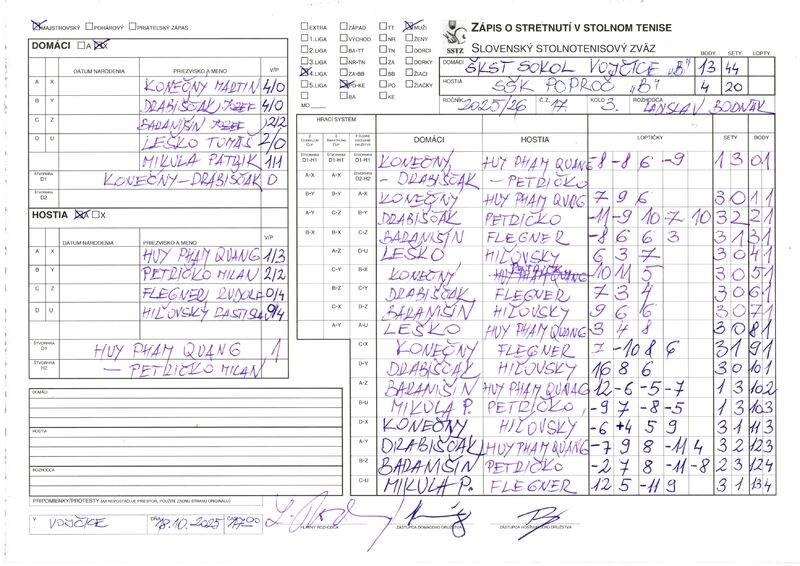 MAJSTROVSKÝ POHÁROVÝ PRIATEĽSKÝ ZÁPAS
DOMÁCI A X
DÁTUM NARODENIA PRIEZVISKO A MENO V/P
A X KONEČNÝ MARTIN 4/0
B Y DRABIŠČAK JOZEF 4/0
C Z BADANIŠIN JOZEF 2/2
D U LEŠKO TUMÁŠ 2/0
MIKULA PATRIK 1/1
ŠTVORHRA D1 KONEČNÝ-DRABIŠČAK 0
ŠTVORHRA D2
HOSTIA A X
DÁTUM NARODENIA PRIEZVISKO A MENO V/P
A X HUY PHAM QUANG 1/3
B Y PETRIČKO MILAN 2/2
C Z FLEGNER RUDOLF 0/4
D U HIĽOVSKY RASTISLAV 0/4
ŠTVORHRA D1 HUY PHAM QUANG 1
ŠTVORHRA H2 - PETRIČKO MILAN
DOMÁCI
HOSTIA
ROZHODCA
PRIPOMIENKY/PROTESTY (AK NEPOSTAČUJE PRIESTOR, POUŽITE ZADNÚ STRANU ORIGINÁLU)
V VOJČICE DŇA 18.10.2025 ČAS 17:00
HLAVNÝ ROZHODCA ZÁSTUPCA DOMÁCEHO DRUŽSTVA ZÁSTUPCA HOSŤUJÚCEHO DRUŽSTVA
EXTRA ZÁPAD TT MUŽI
1.LIGA VÝCHOD NR ŽENY
2.LIGA BA-TT TN DORCI
3.LIGA NR-TN ZA DORKY
4.LIGA ZA-BB BB ŽIACI
5.LIGA PO-KE PO ŽIAČKY
BA KE
MO
SSTZ
ZÁPIS O STRETNUTÍ V STOLNOM TENISE
SLOVENSKÝ STOLNOTENISOVÝ ZVÄZ
BODY SETY LOPTY
DOMÁCI ŠKST SOKOL VOJČICE "B" 13 44
HOSTIA SŠK POPROČ "B" 4 20
ROČNÍK 2025/26 Č.Z. 17. KOLO 3. ROZHODCA LADISLAV BODNÁR
HRACÍ SYSTÉM
DOMÁCI HOSTIA LOPTIČKY SETY BODY
ŠTVORHRA D1-H1 ŠTVORHRA D1-H1 ŠTVORHRA D1-H1 KONEČNÝ HUY PHAM QUANG -8 -8 6 -9 1 3 0 1
A-X ŠTVORHRA D2-H2 - DRABIŠČAK - PETRIČKO
B-Y A-X KONEČNÝ HUY PHAM QUANG 7 9 6 3 0 1 1
A-Y C-Z B-Y DRABIŠČAK PETRIČKO -11 -9 10 7 10 3 2 2 1
B-X B-X C-Z BADANIŠIN FLEGNER -8 6 6 3 3 1 3 1
A-Z D-U LEŠKO HIĽOVSKY 6 3 7 3 0 4 1
C-Y B-X KONEČNÝ PETRIČKO 10 11 5 3 0 5 1
B-Z C-Y DRABIŠČAK FLEGNER 7 3 4 3 0 6 1
C-X D-Z BADANIŠIN HIĽOVSKY 9 6 6 3 0 7 1
A-Y A-U LEŠKO HUY PHAM QUANG 3 4 8 3 0 8 1
C-X KONEČNÝ FLEGNER 7 -10 8 6 3 1 9 1
D-Y DRABIŠČAK HIĽOVSKY 16 8 6 3 0 10 1
A-Z BADANIŠIN HUY PHAM QUANG 12 -6 -5 -7 1 3 10 2
B-U MIKULA P. PETRIČKO -9 7 -8 -5 1 3 10 3
D-X KONEČNÝ HIĽOVSKY -6 +4 5 9 3 1 11 3
A-Y DRABIŠČAK HUY PHAM QUANG -7 9 8 -11 4 3 2 12 3
B-Z BADANIŠIN PETRIČKO -2 7 8 -11 -8 2 3 12 4
C-U MIKULA P. FLEGNER 12 5 -11 9 3 1 13 4